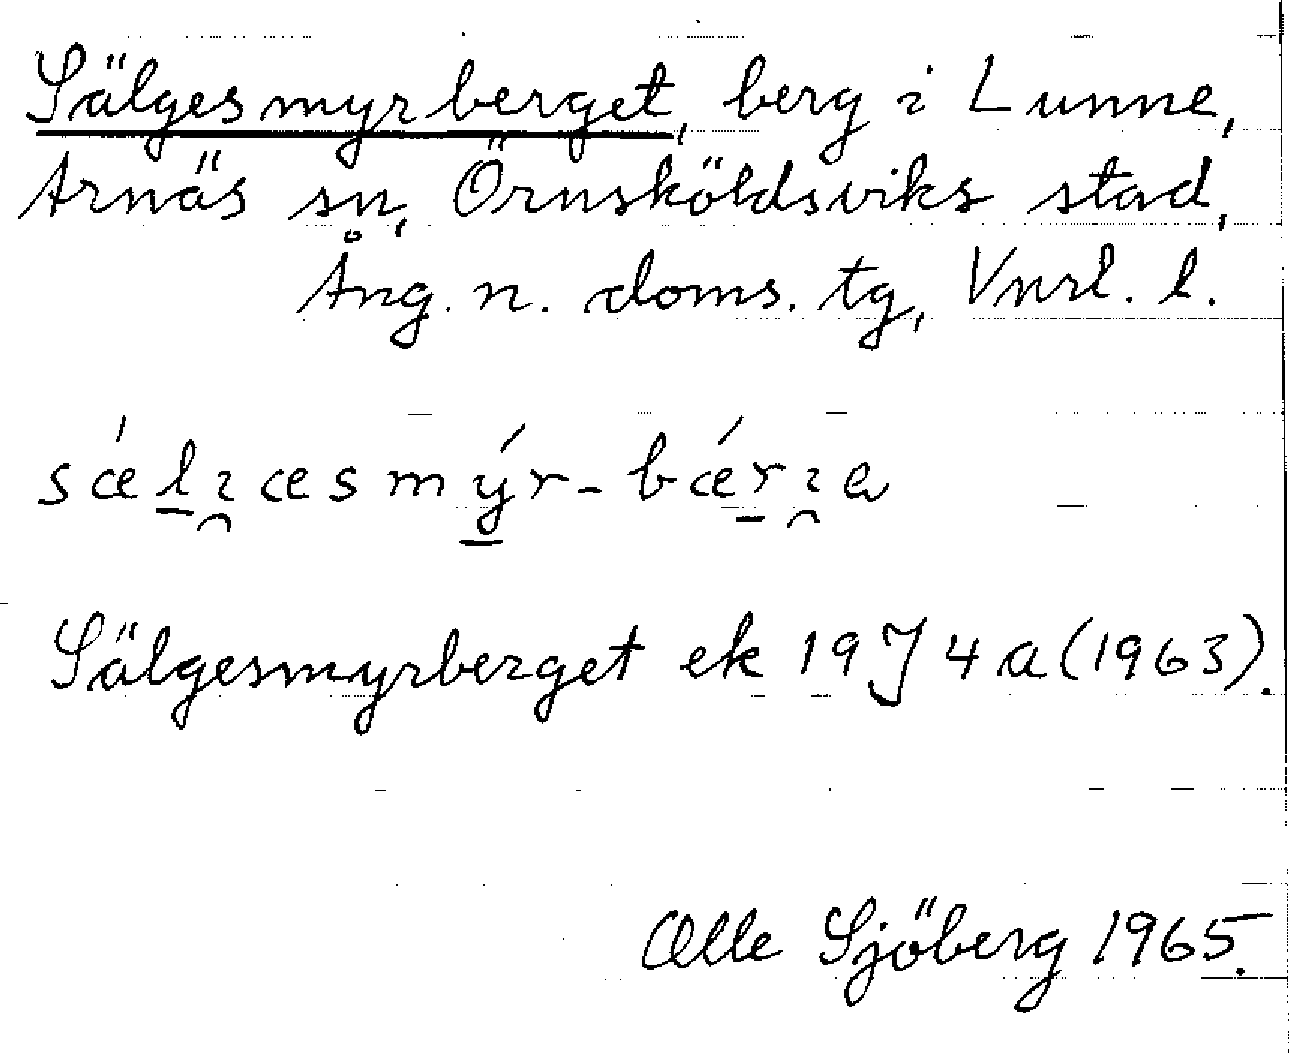 Sälgesmyrberget, berg i Lunne,
Arnäs sn, Örnsköldsviks stad,
Ång. n. doms. tg, Vnrl. l.
sǽl̲ı̯æsmý̲r-bǽr̲ı̯a
Sälgesmyrberget ek 19J4a(1963).
Olle Sjöberg 1965.